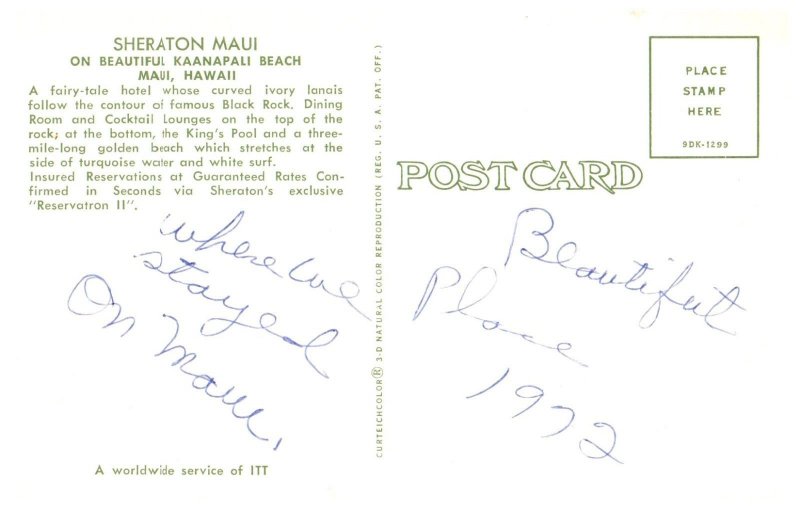 SHERATON MAUI
ON BEAUTIFUL KAANAPALI BEACH
MAUI, HAWAII
A fairy-tale hotel whose curved ivory lanais
follow the contour of famous Black Rock. Dining
Room and Cocktail Lounges on the top of the
rock; at the bottom, the King's Pool and a three-
mile-long golden beach which stretches at the
side of turquoise water and white surf.
Insured Reservations at Guaranteed Rates Con-
firmed in Seconds via Sheraton's exclusive
"Reservatron II".
where we
stayed
On Maui,
A worldwide service of ITT
CURTEICHCOLOR® 3-D NATURAL COLOR REPRODUCTION (REG. U. S. A. PAT. OFF.)
POST CARD
PLACE
STAMP
HERE
9DK-1299
Beautiful
Place
1972